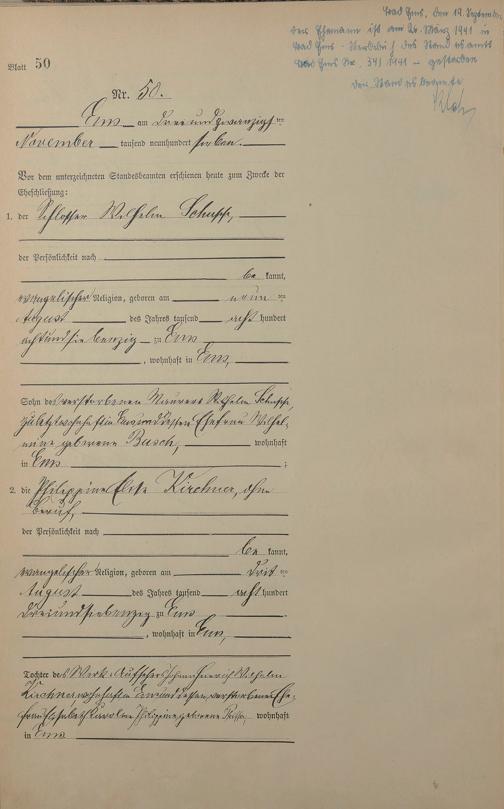 Bad Ems, den 19. September
der Ehemann ist am 26. März 1941 in
Bad Ems - Sterbebuch des Standesamts
Bad Ems Nr. 34/1941 - gestorben
Der Standesbeamte
Blatt 50
Nr. 50.
Ems am drei und zwanzigsten
November tausend neunhundert sieben.
Vor dem unterzeichneten Standesbeamten erschienen heute zum Zwecke der
Eheschließung:
1. der Schlosser Wilhelm
der Persönlichkeit nach
bekannt,
evangelischer Religion, geboren am neun ten
August des Jahres tausend acht hundert
achtundsiebenzig zu Ems
, wohnhaft in Ems,
Sohn des verstorbenen Maurers Wilhelm
zuletzt wohnhaft in Ems und dessen Ehefrau Wilhel-
mine geborene Busch, wohnhaft
in Ems ;
2. die Philippine Elise Kirchner, ohne
Beruf,
der Persönlichkeit nach
bekannt,
evangelischer Religion, geboren am drit ten
August des Jahres tausend acht hundert
dreiundsiebenzig zu Ems
, wohnhaft in Ems,
Tochter des Werk-Aufsehers Johann Wilhelm
Kirchner, wohnhaft in Ems und dessen verstorbenen Ehe-
frau Elisabeth Karoline Philippine geborene wohnhaft
in Ems